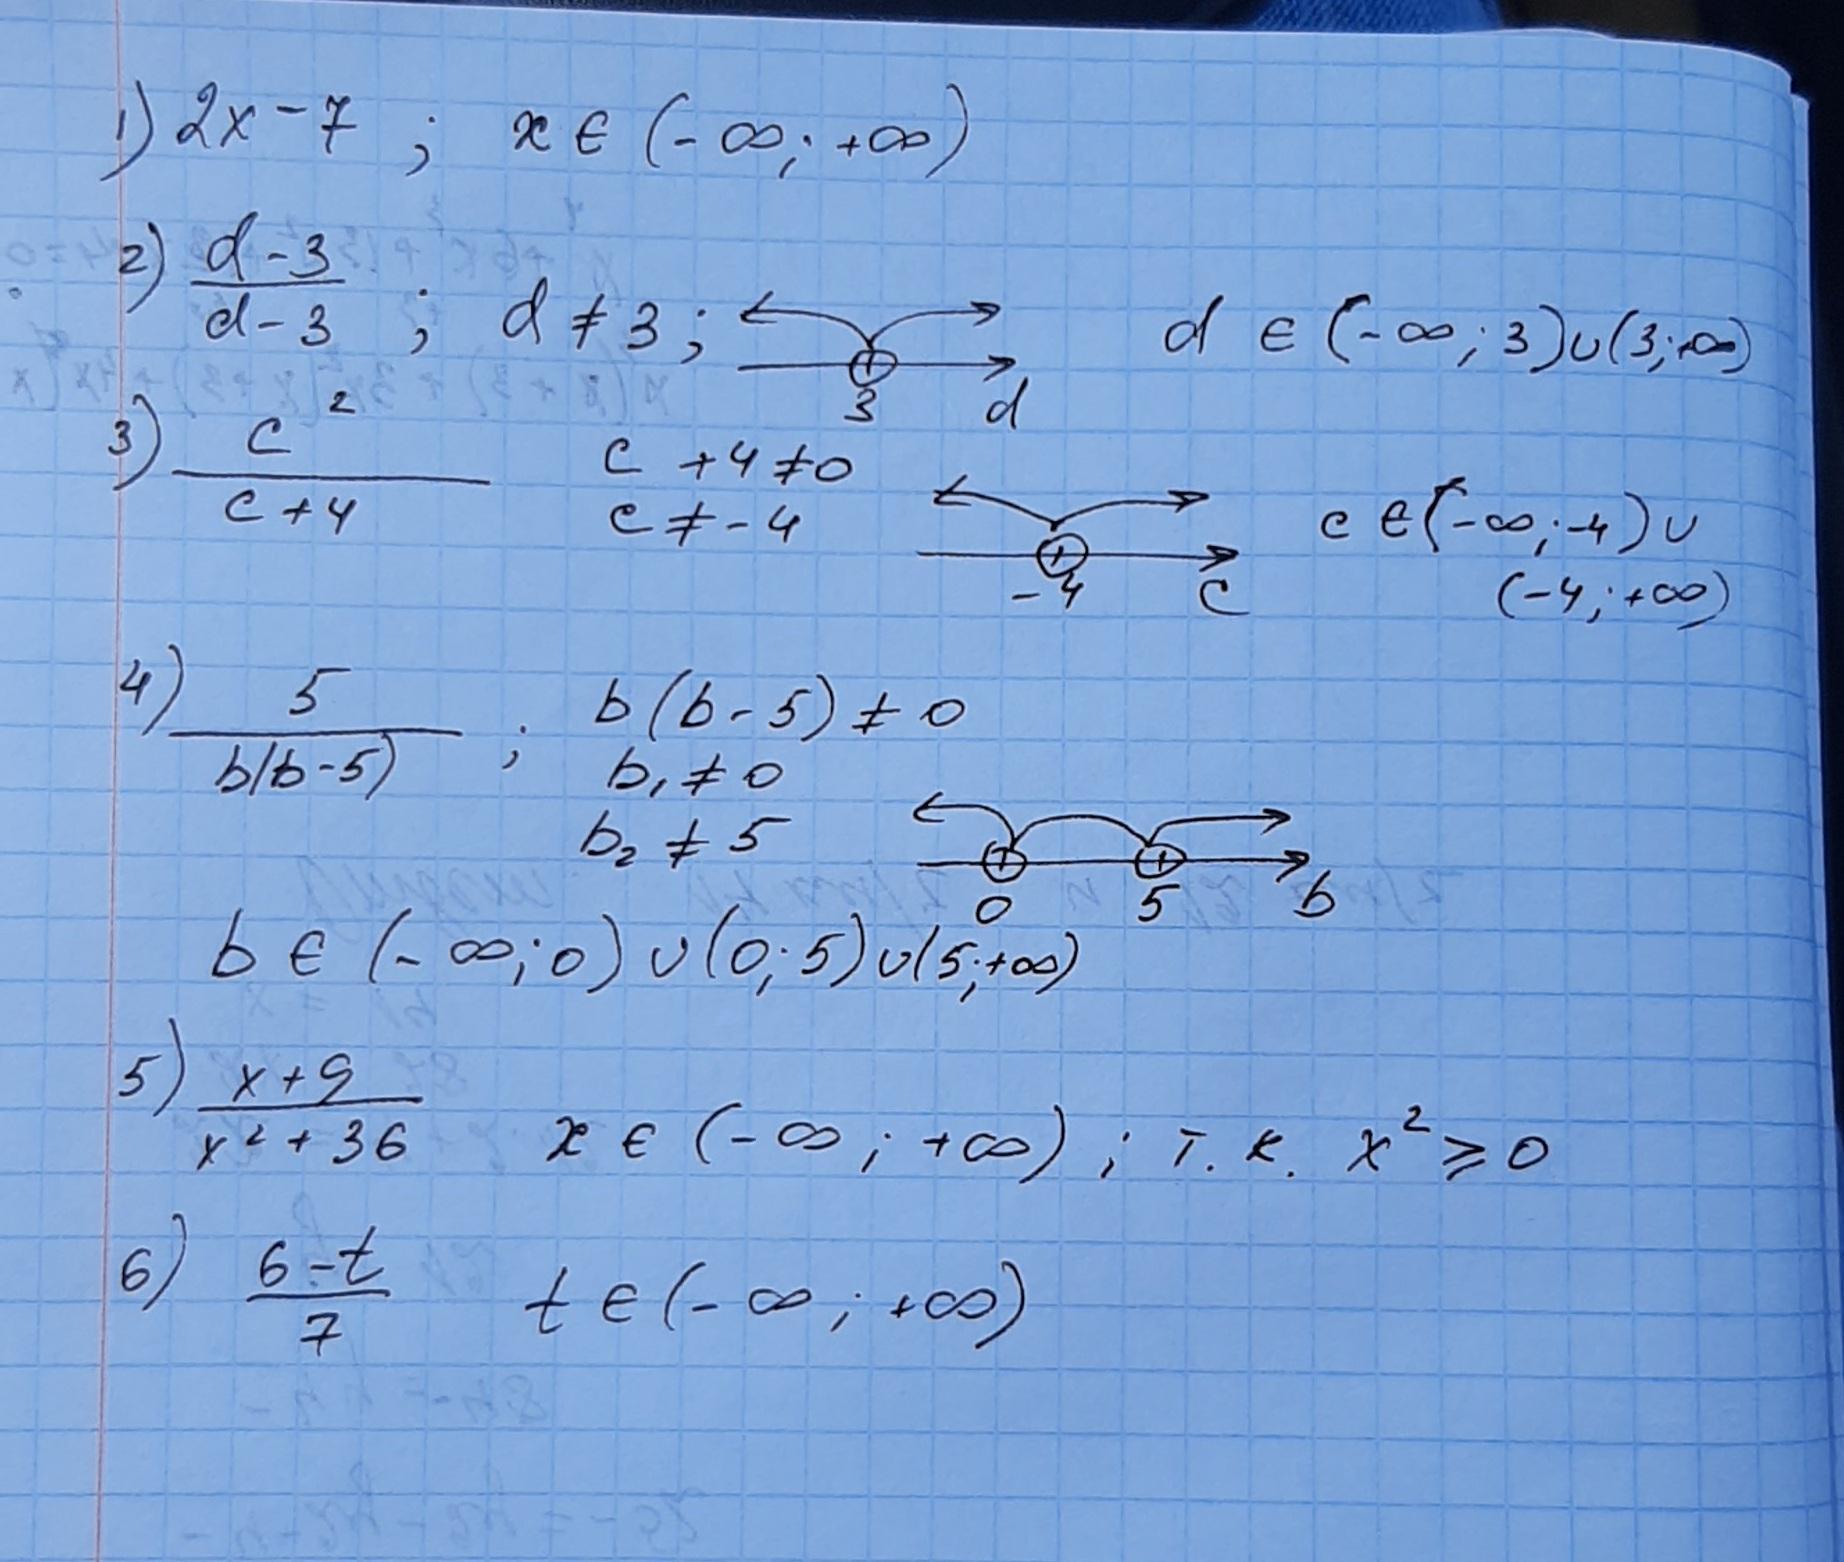 1) 2x - 7 ; x ∈ (- ∞; +∞)
2) (d - 3)/(d - 3) ; d ≠ 3; 3 d d ∈ (-∞; 3) ∪ (3; +∞)
3) c²/(c + 4) c + 4 ≠ 0
c ≠ -4 -4 c c ∈ (-∞; -4) ∪
(-4; +∞)
4) 5/(b(b - 5)) ; b(b - 5) ≠ 0
b₁ ≠ 0
b₂ ≠ 5 0 5 b
b ∈ (- ∞; 0) ∪ (0; 5) ∪ (5; +∞)
5) (x + 9)/(x² + 36) x ∈ (- ∞; +∞) ; т. к. x² ⩾ 0
6) (6 - t)/7 t ∈ (- ∞ ; +∞)